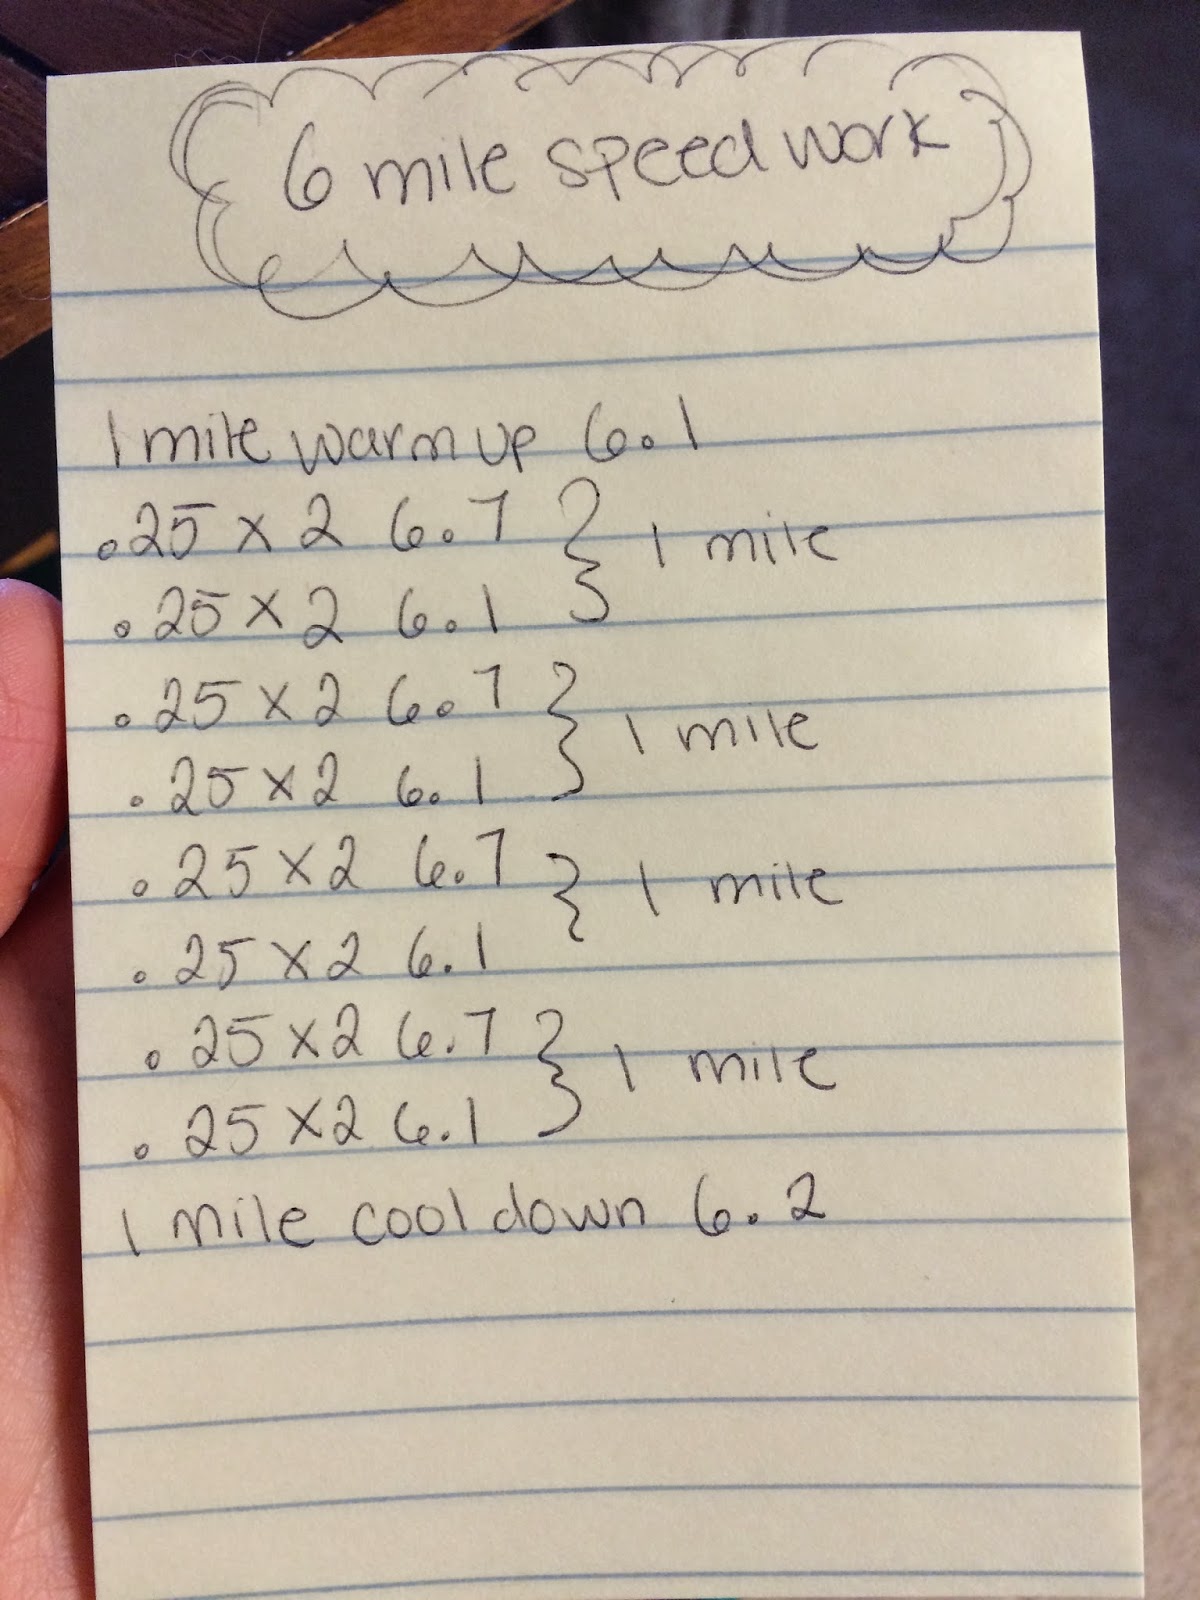 6 mile speed work
1 mile warm up 6.1
.25 x 2 6.7 } 1 mile
.25 x 2 6.1
.25 x 2 6.7 } 1 mile
.25 x 2 6.1
.25 x 2 6.7 } 1 mile
.25 x 2 6.1
.25 x 2 6.7 } 1 mile
.25 x 2 6.1
1 mile cool down 6.2